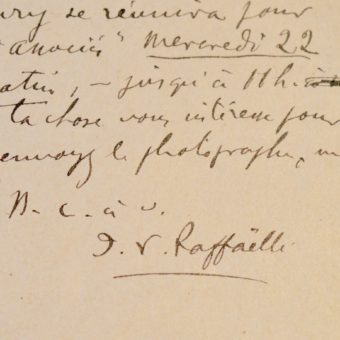 ury se réunira pour
"associés" Mercredi 22
atin, — jusqu'à 11h.
ta chose vous intéresse pour
envoyez le photographe,
B. c. à v.
J. F. Raffaëlli